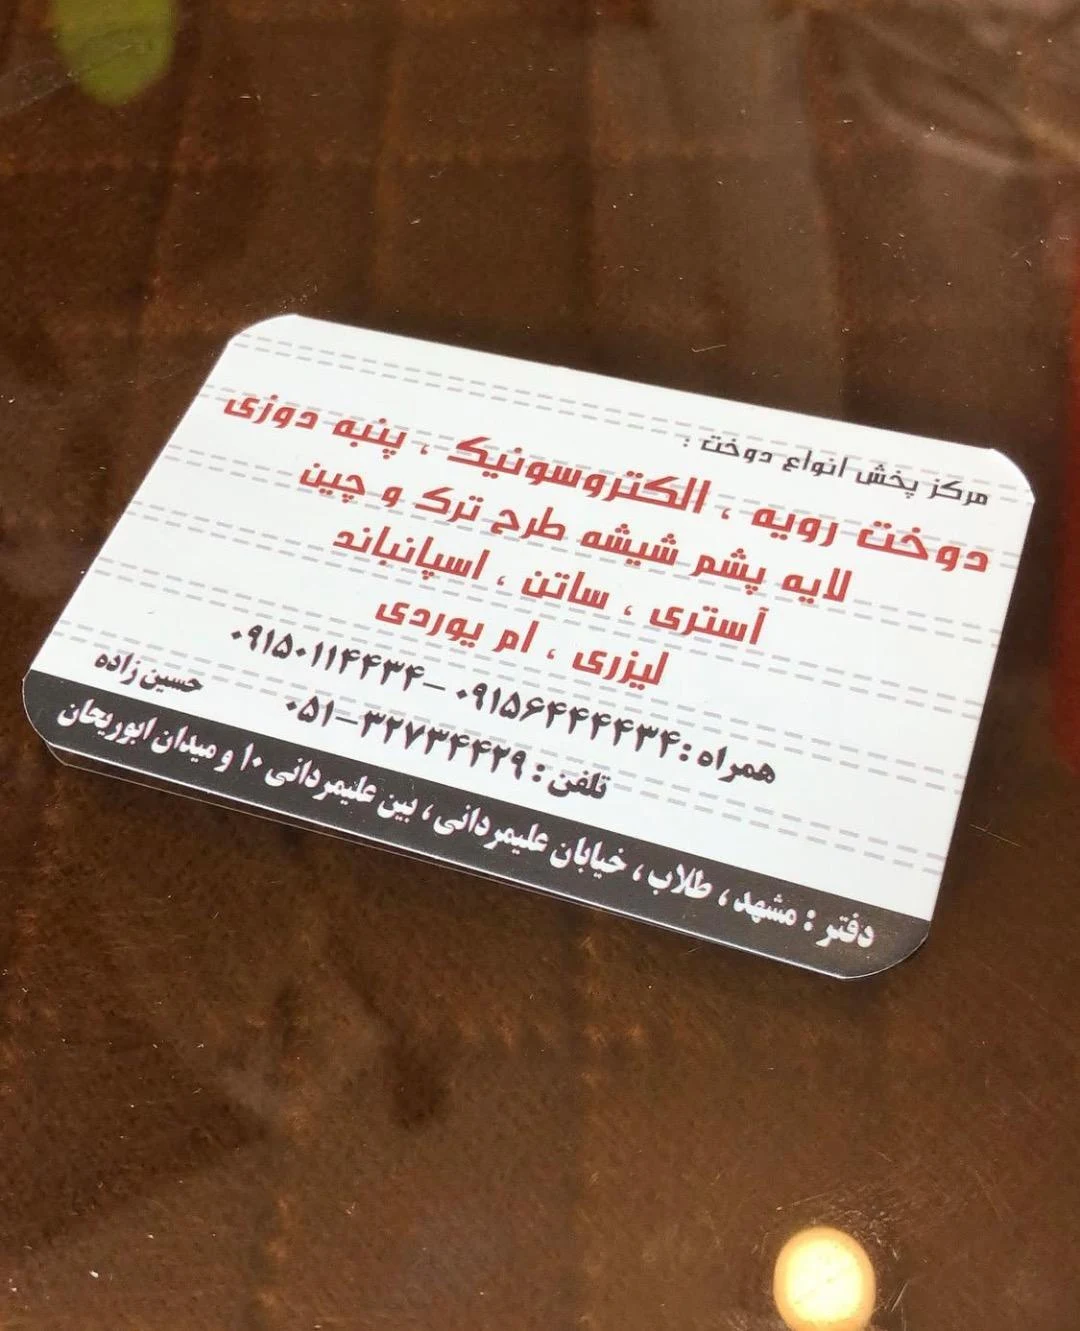 مرکز پخش انواع دوخت :
دوخت رویه ، الکتروسونیک ، پنبه دوزی
لایه پشم شیشه طرح ترک و چین
آستری ، ساتن ، اسپانباند
لیزری ، ام یوردی
همراه : ۰۹۱۵۶۴۴۴۴۳۴ - ۰۹۱۵۰۱۱۴۴۳۴
تلفن : ۳۲۷۳۴۴۲۹-۰۵۱
حسین زاده
دفتر : مشهد ، طلاب ، خیابان علیمردانی ، بین علیمردانی ۱۰ و میدان ابوریحان